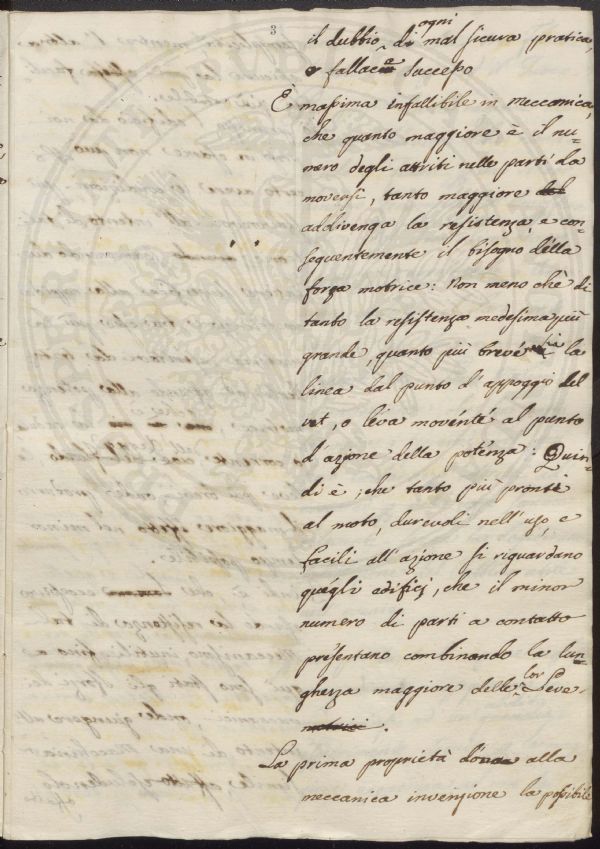 3
il dubbio di ogni mal sicura pratica,
o fallace successo
È massima infallibile in meccanica,
che quanto maggiore è il nu-
mero degli attriti nelle parti da
moversi, tanto maggiore
addivenga la resistenza, e con-
seguentemente il bisogno della
forza motrice: Non meno chè di
tanto la resistenza medesima più
grande, quanto più breve sia la
linea dal punto d'appoggio del
vet, o leva movente al punto
d'azione della potenza: Quin-
di è, che tanto più pronti
al moto, durevoli nell'uso, e
facili all'azione si riguardano
quegli edificj, che il minor
numero di parti a contatto
presentano combinando la lun-
ghezza maggiore delle lor Leve
motrici.
La prima proprietà dona alla
meccanica invenzione la possibile